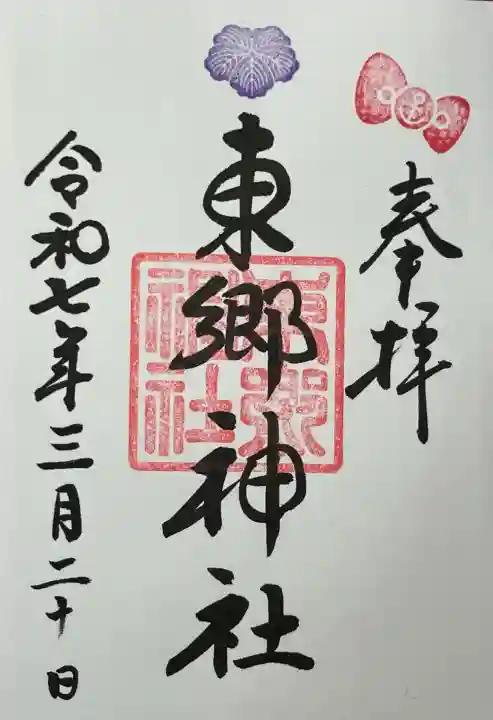 奉拝
東郷神社
東郷神社
令和七年三月二十日